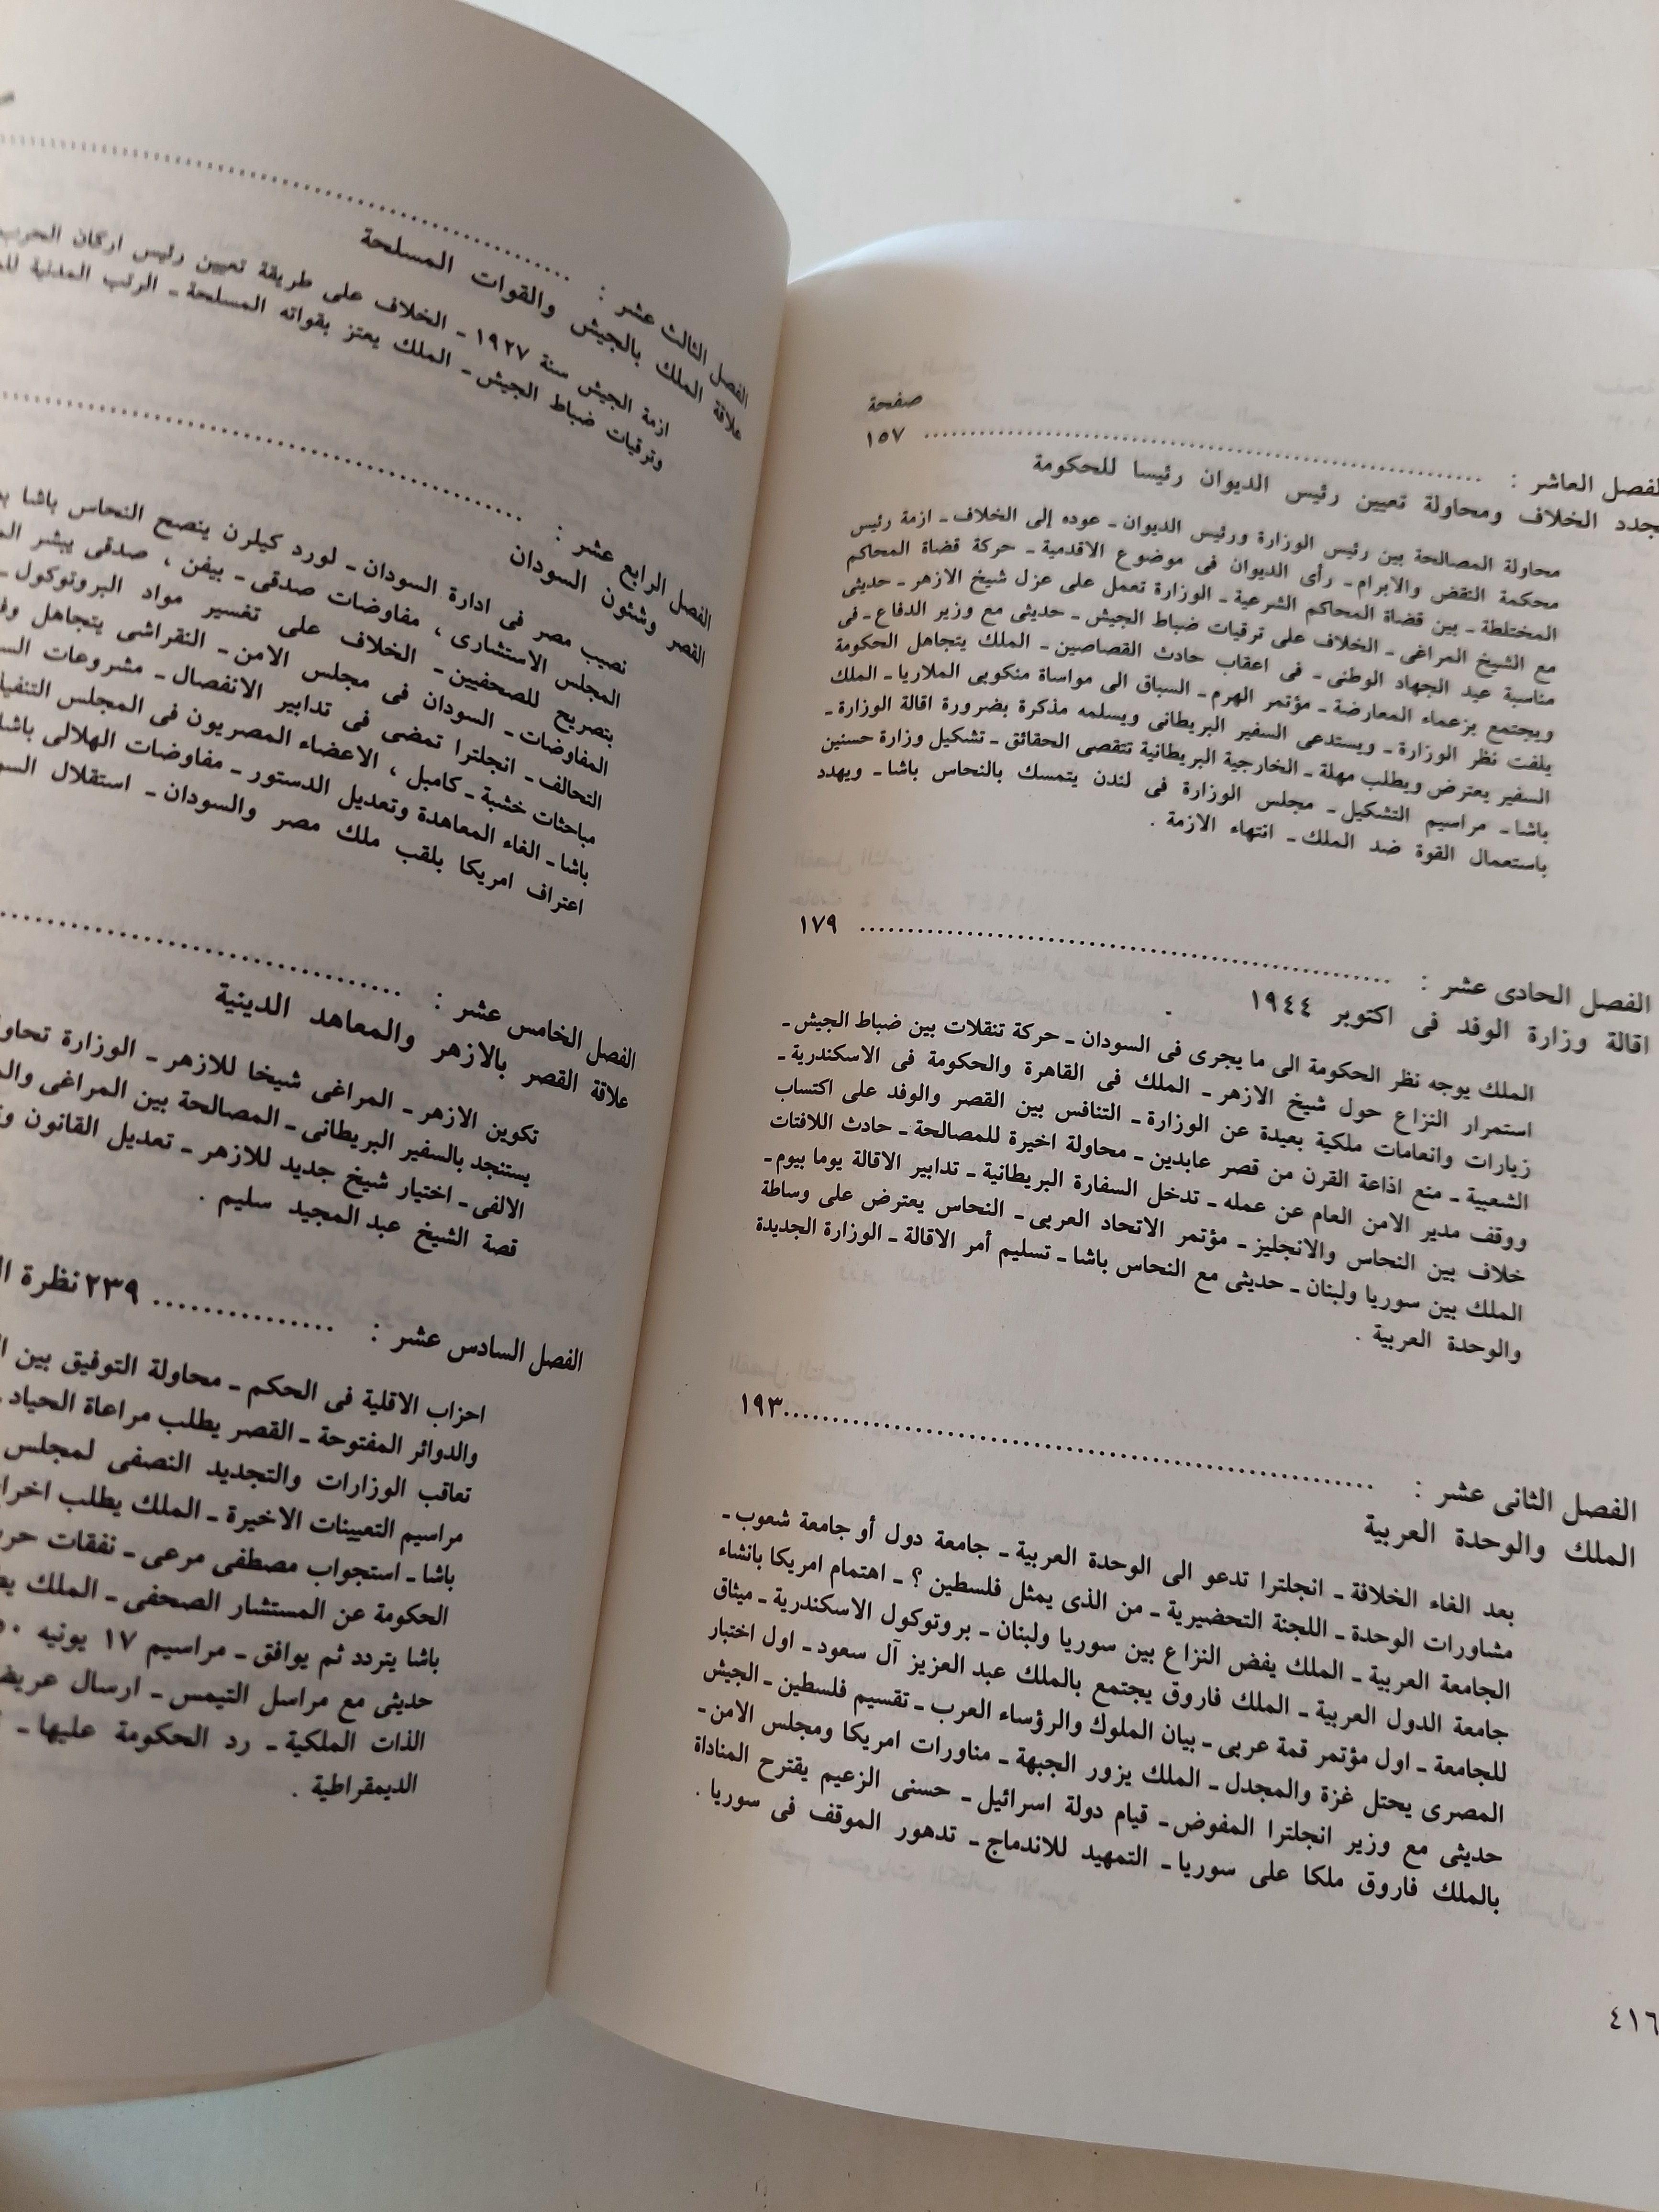 صفحة
الفصل العاشر : ........ ١٥٧
تجدد الخلاف ومحاولة تعيين رئيس الديوان رئيسا للحكومة
محاولة المصالحة بين رئيس الوزارة ورئيس الديوان ـ عوده إلى الخلاف ـ ازمة رئيس
محكمة النقض والابرام ـ رأى الديوان فى موضوع الاقدمية ـ حركة قضاة المحاكم
المختلطة ـ بين قضاة المحاكم الشرعية ـ الوزارة تعمل على عزل شيخ الازهر ـ حديثى
مع الشيخ المراغى ـ الخلاف على ترقيات ضباط الجيش ـ حديثى مع وزير الدفاع ـ فى
مناسبة عيد الجهاد الوطنى ـ فى اعقاب حادث القصاصين ـ الملك يتجاهل الحكومة
ويجتمع بزعماء المعارضة ـ مؤتمر الهرم ـ السباق الى مواساة منكوبى الملاريا ـ الملك
يلفت نظر الوزارة ـ ويستدعى السفير البريطانى ويسلمه مذكرة بضرورة اقالة الوزارة ـ
السفير يعترض ويطلب مهلة ـ الخارجية البريطانية تتقصى الحقائق ـ تشكيل وزارة حسنين
باشا ـ مراسيم التشكيل ـ مجلس الوزارة فى لندن يتمسك بالنحاس باشا ـ ويهدد
باستعمال القوة ضد الملك ـ انتهاء الازمة .
الفصل الحادى عشر : ........ ١٧٩
اقالة وزارة الوفد فى اكتوبر ١٩٤٤
الملك يوجه نظر الحكومة الى ما يجرى فى السودان ـ حركة تنقلات بين ضباط الجيش ـ
استمرار النزاع حول شيخ الازهر ـ الملك فى القاهرة والحكومة فى الاسكندرية ـ
زيارات وانعامات ملكية بعيدة عن الوزارة ـ التنافس بين القصر والوفد على اكتساب
الشعبية ـ منع اذاعة القرن من قصر عابدين ـ محاولة اخيرة للمصالحة ـ حادث اللافتات
ووقف مدير الامن العام عن عمله ـ تدخل السفارة البريطانية ـ تدابير الاقالة يوما بيوم ـ
خلاف بين النحاس والانجليز ـ مؤتمر الاتحاد العربى ـ النحاس يعترض على وساطة
الملك بين سوريا ولبنان ـ حديثى مع النحاس باشا ـ تسليم أمر الاقالة ـ الوزارة الجديدة
والوحدة العربية .
الفصل الثانى عشر : ........ ١٩٣
الملك والوحدة العربية
بعد الغاء الخلافة ـ انجلترا تدعو الى الوحدة العربية ـ جامعة دول أو جامعة شعوب ـ
مشاورات الوحدة ـ اللجنة التحضيرية ـ من الذى يمثل فلسطين ؟ ـ اهتمام امريكا بانشاء
الجامعة العربية ـ الملك يفض النزاع بين سوريا ولبنان ـ بروتوكول الاسكندرية ـ ميثاق
جامعة الدول العربية ـ الملك فاروق يجتمع بالملك عبد العزيز آل سعود ـ اول اختبار
للجامعة ـ اول مؤتمر قمة عربى ـ بيان الملوك والرؤساء العرب ـ تقسيم فلسطين ـ الجيش
المصرى يحتل غزة والمجدل ـ الملك يزور الجبهة ـ مناورات امريكا ومجلس الامن ـ
حديثى مع وزير انجلترا المفوض ـ قيام دولة اسرائيل ـ حسنى الزعيم يقترح المناداة
بالملك فاروق ملكا على سوريا ـ التمهيد للاندماج ـ تدهور الموقف فى سوريا .
٤١٦
الفصل الثالث عشر : ........
علاقة الملك بالجيش والقوات المسلحة
ازمة الجيش سنة ١٩٢٧ ـ الخلاف على طريقة تعيين رئيس اركان الحرب
وترقيات ضباط الجيش ـ الملك يعتز بقواته المسلحة ـ الرتب المدنية
الفصل الرابع عشر : ........
القصر وشئون السودان
نصيب مصر فى ادارة السودان ـ لورد كيلرن ينصح النحاس باشا
المجلس الاستشارى ، مفاوضات صدقى ـ بيفن ، صدقى يبشر
بتصريح للصحفيين ـ الخلاف على تفسير مواد البروتوكول ـ
المفاوضات ـ السودان فى مجلس الامن ـ النقراشى يتجاهل
التحالف ـ انجلترا تمضى فى تدابير الانفصال ـ مشروعات
مباحثات خشبة ـ كامبل ، الاعضاء المصريون فى المجلس
باشا ـ الغاء المعاهدة وتعديل الدستور ـ مفاوضات الهلالى باشا
اعتراف امريكا بلقب ملك مصر والسودان ـ استقلال
الفصل الخامس عشر : ........
علاقة القصر بالازهر والمعاهد الدينية
تكوين الازهر ـ المراغى شيخا للازهر ـ الوزارة
يستنجد بالسفير البريطانى ـ المصالحة بين المراغى
الالفى ـ اختيار شيخ جديد للازهر ـ تعديل القانون
قصة الشيخ عبد المجيد سليم .
الفصل السادس عشر : ........ ٢٣٩ نظرة
احزاب الاقلية فى الحكم ـ محاولة التوفيق بين
والدوائر المفتوحة ـ القصر يطلب مراعاة الحياد
تعاقب الوزارات والتجديد النصفى لمجلس
مراسيم التعيينات الاخيرة ـ الملك يطلب
باشا ـ استجواب مصطفى مرعى ـ نفقات
الحكومة عن المستشار الصحفى ـ الملك
باشا يتردد ثم يوافق ـ مراسيم ١٧ يونيه
حديثى مع مراسل التيمس ـ ارسال
الذات الملكية ـ رد الحكومة عليها ـ
الديمقراطية .